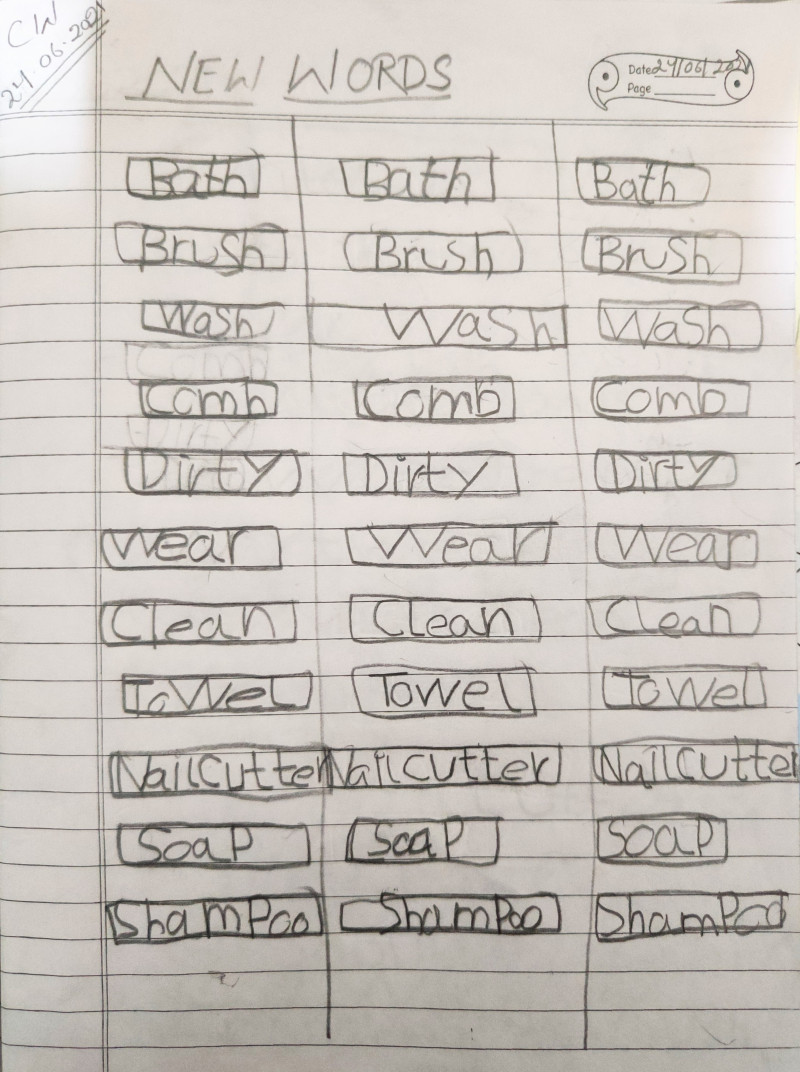 CW
24.06.2021
NEW WORDS
Date 24/06/2021
Page
Bath Bath Bath
Brush Brush Brush
Wash Wash Wash
Comb
Comb Comb Comb
Dirty
Dirty Dirty Dirty
Wear Wear Wear
Clean Clean Clean
Towel Towel Towel
Nailcutter Nailcutter Nailcutter
Soap Soap Soap
Shampoo Shampoo Shampoo